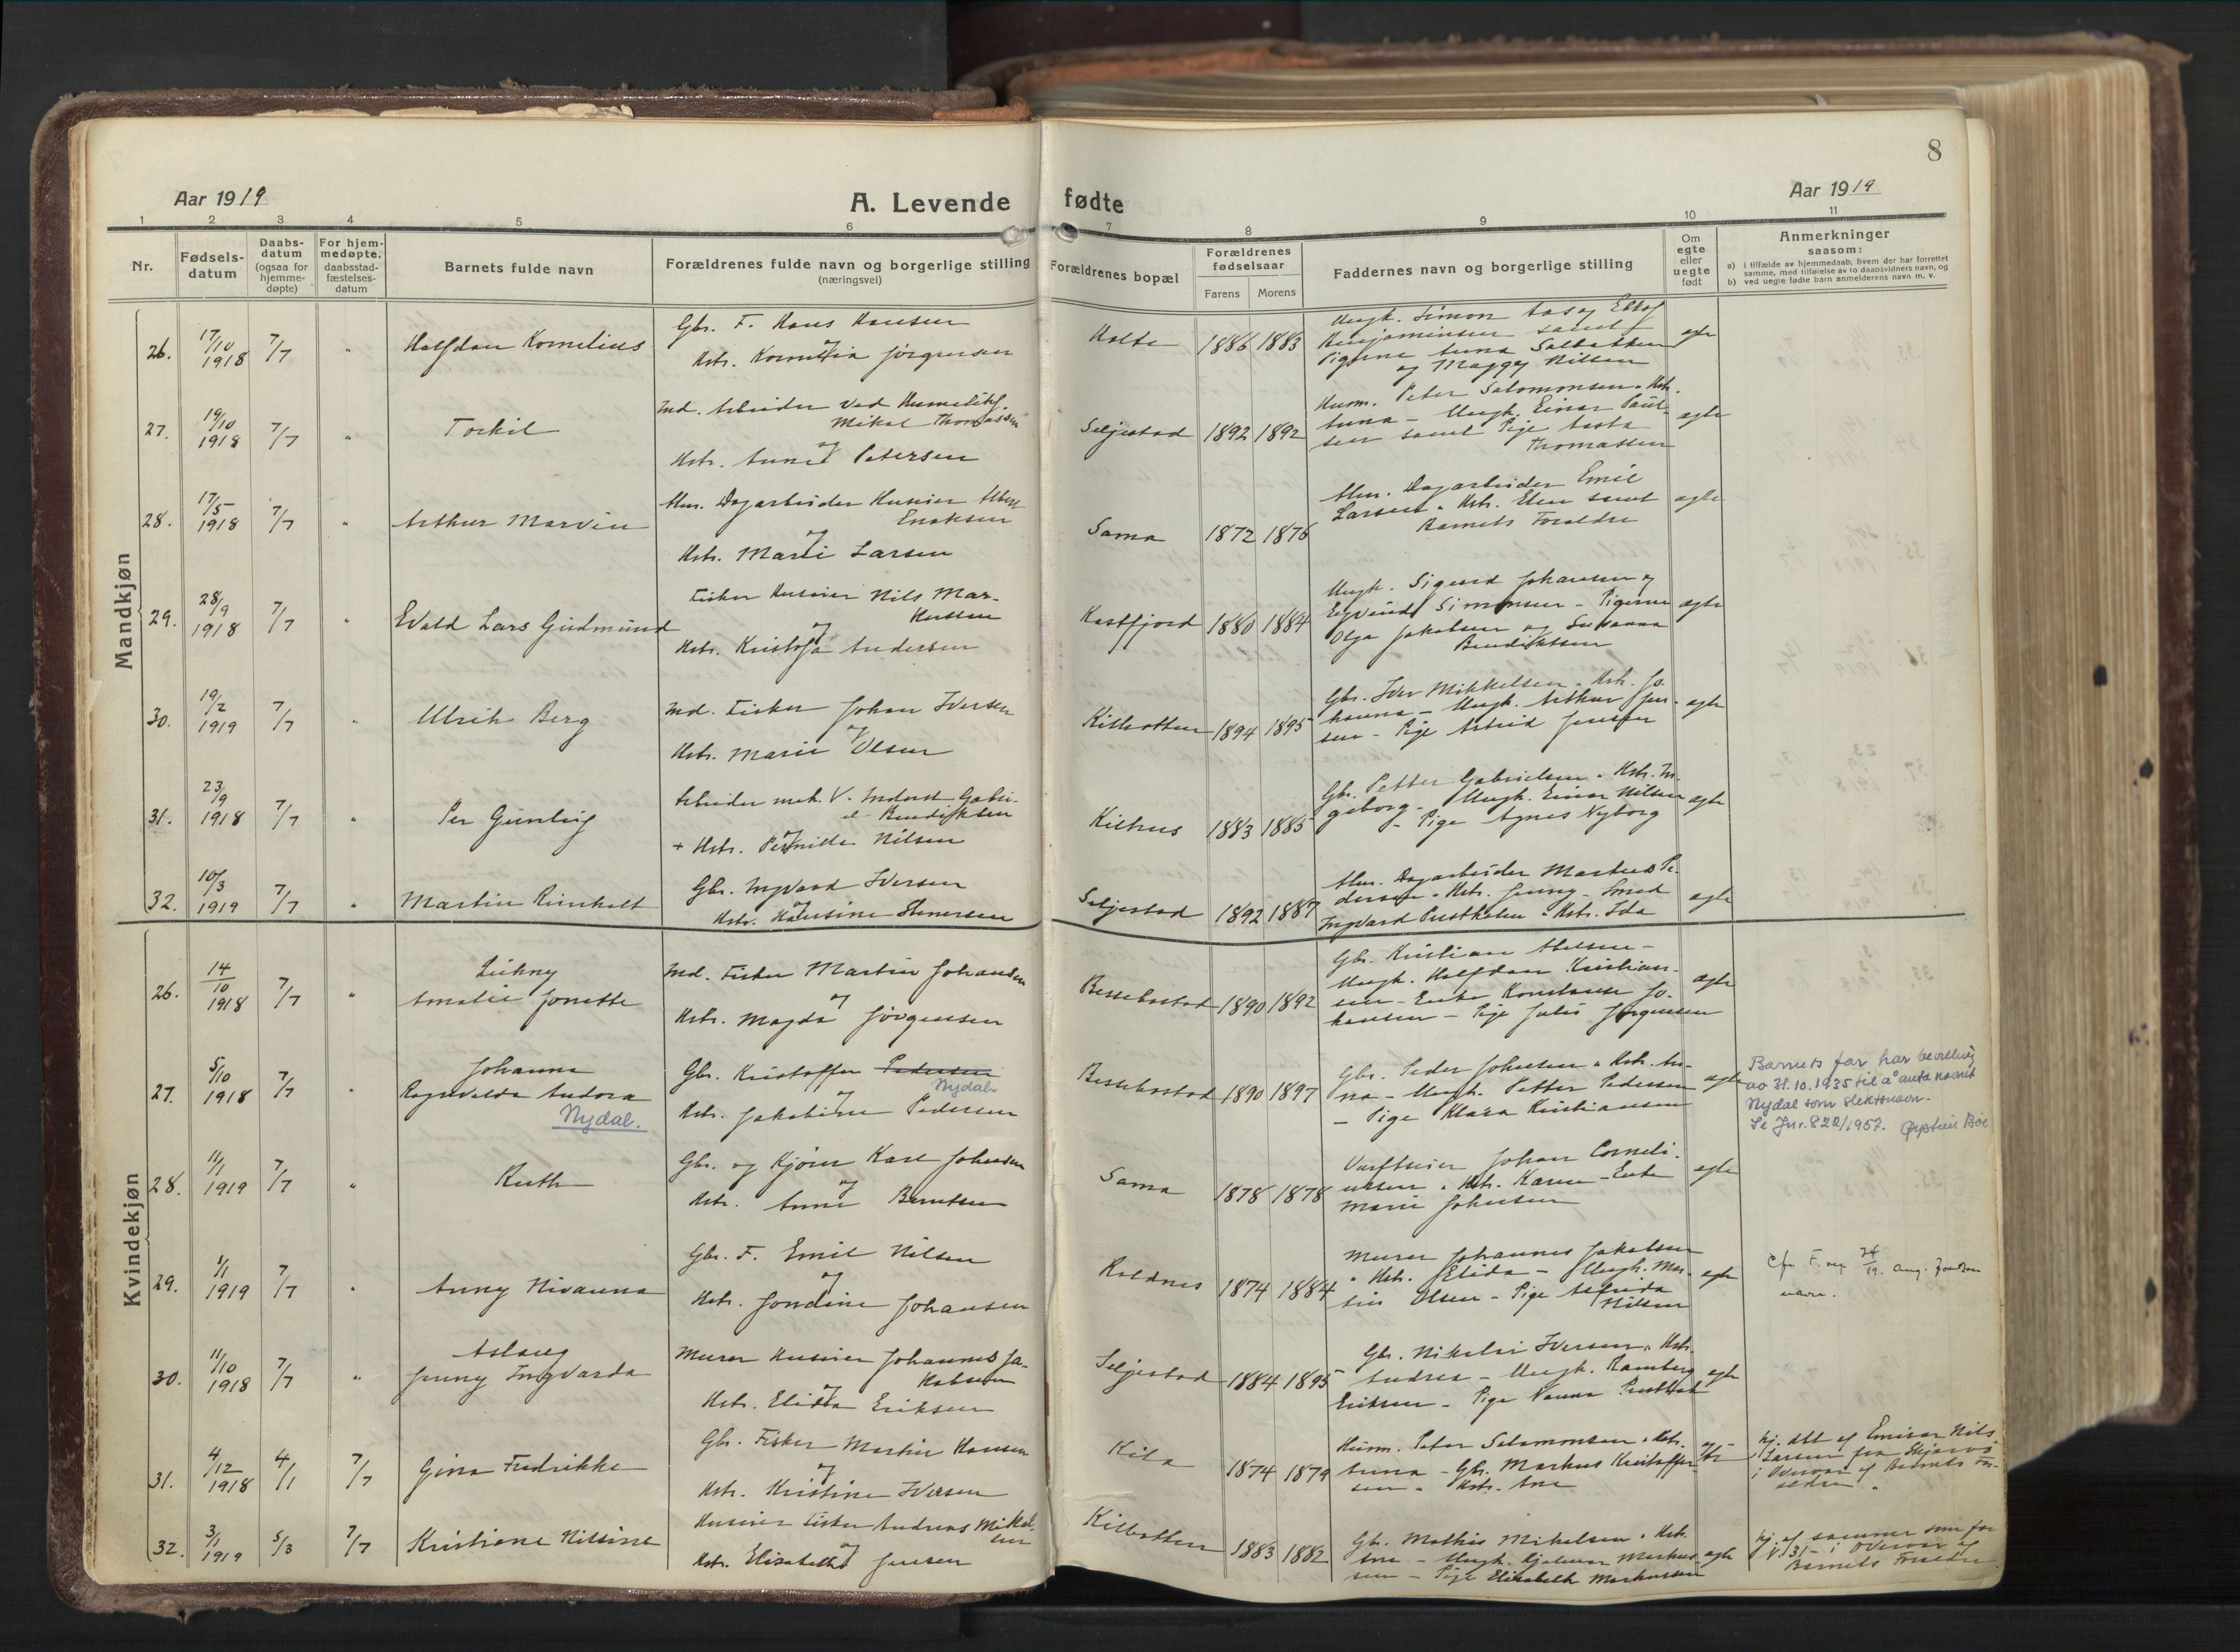 8
Aar 1919
A. Levende fødte
Aar 1919
1 2 3 4 5 6 7 8 9 10 11
Nr.
Fødsels-
datum
Daabs-
datum
(ogsaa for
hjemme-
døpte)
For hjem-
medøpte,
daabsstad-
fæstelses-
datum
Barnets fulde navn
Forældrenes fulde navn og borgerlige stilling
(næringsvei)
Forældrenes bopæl
Forældrenes
fødselsaar
Farens Morens
Faddernes navn og borgerlige stilling
Om
egte
eller
uegte
født
Anmerkninger
saasom:
a) i tilfælde av hjemmedaab, hvem der har forrettet
samme, med tilføielse av to daabsvidners navn, og
b) ved uegte fødte barn anmelderens navn m. v.
Mandkjøn
26.
17/10
1918
7/7
"
Halfdan Kornelius
Gbr. F. Hans Hansen
og
Hstr. Kornelia Jørgensen
1886 1883
Ungk. Simon Aas og
Benjaminsen samt
Pigerne Anna
og Maggy Nilsen
egte
27.
19/10
1918
7/7
"
Torkil
Ind. Arbeider ved
Mikal Thomassen
og
Hstr. Anne Petersen
Seljestad
1892 1892
Husm. Peter Salomonsen " Hstr.
Anna – Ungk. Einar Paul-
sen samt Pige Asta
Thomassen
egte
28.
17/5
1918
7/7
"
Arthur Marvin
Alm. Dagarbeider Huseier Albert
Enoksen
og
Hstr. Marie Larsen
Sama
1872 1876
Alm. Dagarbeider Emil
Larsen " Hstr. Elen samt
Barnets Forældre
egte
29.
28/9
1918
7/7
"
Evald Lars Gudmund
Fisker Huseier Nils Mar-
kussen
og
Hstr. Kristofa Andersen
Kasfjord
1880 1884
Ungk. Sigurd Johansen og
Eyvind Simonsen – Pigerne
Olga Jakobsen og Susanna
Bendiktsen
egte
30.
19/2
1919
7/7
"
Ulrik Berg
Ind. Fisker Johan Iversen
og
Hstr. Marie Olsen
Kilbotten
1894 1895
Gbr. Iver Mikkelsen " Hstr. Jo-
hanna – Ungk. Arthur Jen-
sen – Pige Astrid Jensen
egte
31.
23/9
1918
7/7
"
Per Gunleif
Arbeider mek. V. Indust. Gabri-
el Bendiksen
og
+ Hstr. Pernille Nilsen
Kilhus
1883 1885
Gbr. Petter Gabrielsen " Hstr. In-
geborg – Ungk. Einar Nilsen
– Pige Agnes Nyborg
egte
32.
10/3
1919
7/7
"
Martin Rimholt
Gbr. Ingvard Iversen
og
Hstr. Hansine Stenersen
Seljestad
1892 1887
Alm. Dagarbeider Martens Pe-
dersen " Hstr. Jenny – Smed
Ingvard " Hstr. Ida
egte
Kvindekjøn
26.
14/10
1918
7/7
"
Amalie Jonette
Ind. Fisker Martin Johansen
og
Hstr. Magda Jørgensen
Bessebostad
1890 1892
Gbr. Kristian
Ungk. Halfdan Kristian-
sen – Enke Konstanse Jo-
hansen – Pige Julie Jørgensen
egte
27.
5/10
1918
7/7
"
Johanna
Ragnvalda Andora
Nydal.
Gbr. Kristoffer Pedersen
Nydal.
og
Hstr. Jakobine Pedersen
Bessebostad
1890 1897
Gbr. Peder Johnsen " Hstr. An-
na – Ungk. Petter Pedersen
– Pige Klara Kristiansen
egte
Barnets far har bevilling
av 31.10.1935 til å anta navnet
Nydal som slektsnavn.
Se Jnr. 822/1957. Øystein Bøe
28.
11/1
1919
7/7
"
Ruth
Gbr. og Kjører Karl Johnsen
og
Hstr. Anne Berntsen
Sama
1878 1878
Johan Corneli-
ussen " Hstr. Karen – Enke
Marie Johnsen
egte
29.
1/1
1919
7/7
"
Anny Nivanna
Gbr. F. Emil Nilsen
og
Hstr. Jondine Johansen
Holdnes
1874 1884
Murer Johannes Jakobsen
" Hstr. Elida – Ungk. Mar-
tin Olsen – Pige Alfrida
Nilsen
egte
navn.
30.
11/10
1918
7/7
"
Aslaug
Jenny Ingvarda
Murer Huseier Johannes Ja-
kobsen
og
Hstr. Elida Eriksen
Seljestad
1884 1895
Gbr. Nikolai Iversen " Hstr.
Andrea – Ungk. Ramberg
Eriksen – Pige Nanna
egte
31.
4/12
1918
4/1
7/7
Gina Fredrikke
Gbr. Fisker Martin Hansen
og
Hstr. Kristine Iversen
Kila
1874 1879
Husm. Peter Salomonsen " Hstr.
Anna – Gbr. Markus Kristoffer-
sen " Hstr. Ane
egte
hj. dbt af Emissær Nils
Larsen fra Skjærvø
i Overvær af Barnets For-
ældre.
32.
3/1
1919
5/3
7/7
Kristiane Nilsine
Huseier Fisker Andreas Mikal-
sen
og
Hstr. Elisabeth Jensen
Kilbotten
1883 1882
Gbr. Mathis Mikelsen " Hstr.
Ane – Ungk. Hjalmar Markus-
sen – Pige Elisabeth Markussen
egte
hj. af samme som for
№ 31 – i Overvær af
Barnets Forældre